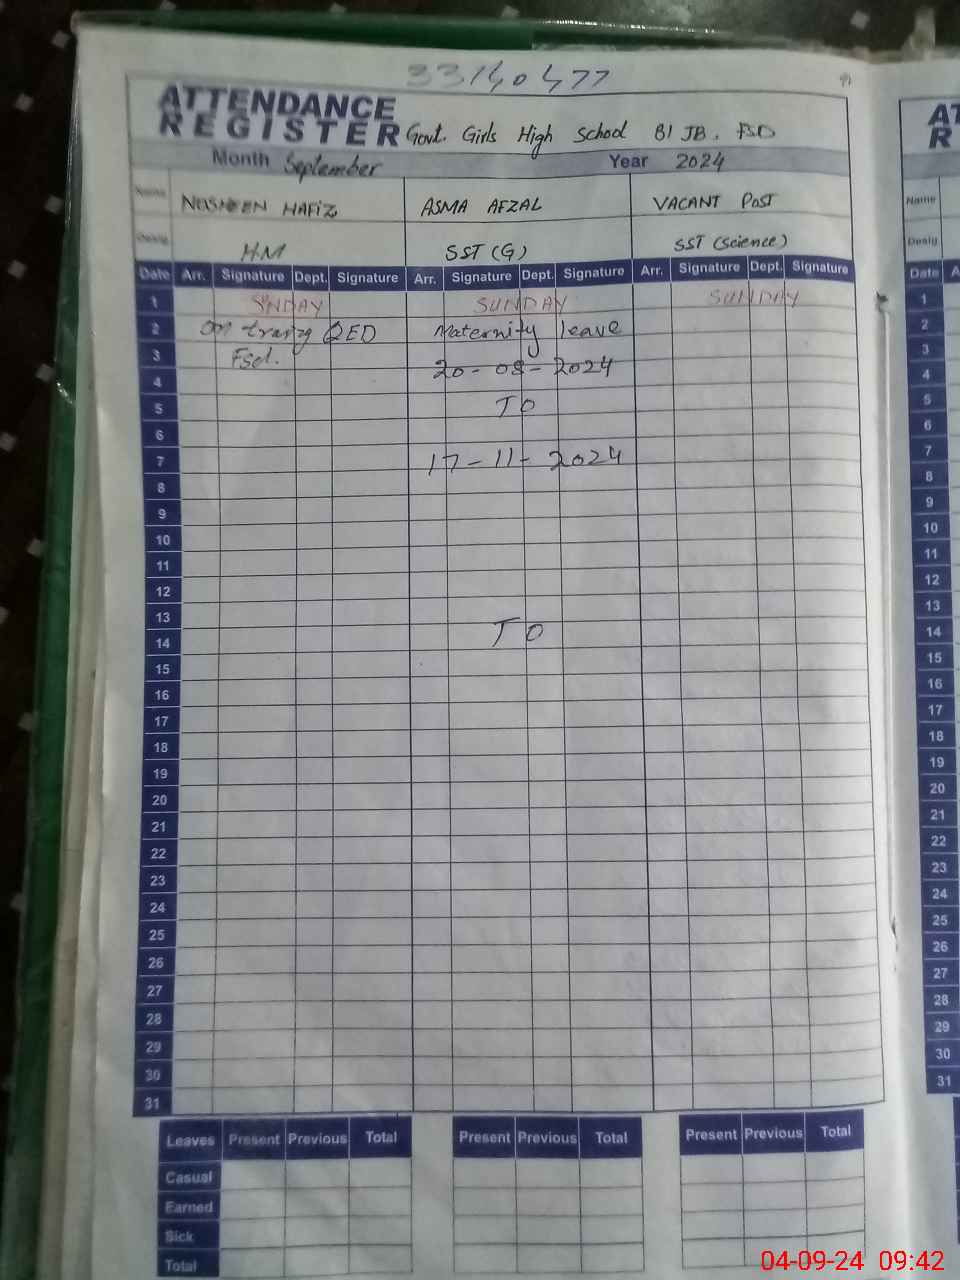 33140477
ATTENDANCE
REGISTER Govt. Girls High School 81 JB. FSD
Month September Year 2024
Name NOSHEEN HAFIZ ASMA AFZAL VACANT Post
Desig. HM SST (G) SST (Science)
Date Arr. Signature Dept. Signature Arr. Signature Dept. Signature Arr. Signature Dept. Signature
1 SUNDAY SUNDAY SUNDAY
2 On QED Maternity leave
3 Fsd. 20-08-2024
4
5 TO
6
7 17-11-2024
8
9
10
11
12
13
14 TO
15
16
17
18
19
20
21
22
23
24
25
26
27
28
29
30
31
Leaves Present Previous Total Present Previous Total Present Previous Total
Casual
Earned
Sick
Total
AT
R
Name
Desig.
Date A
1
2
3
4
5
6
7
8
9
10
11
12
13
14
15
16
17
18
19
20
21
22
23
24
25
26
27
28
29
30
31
04-09-24 09:42